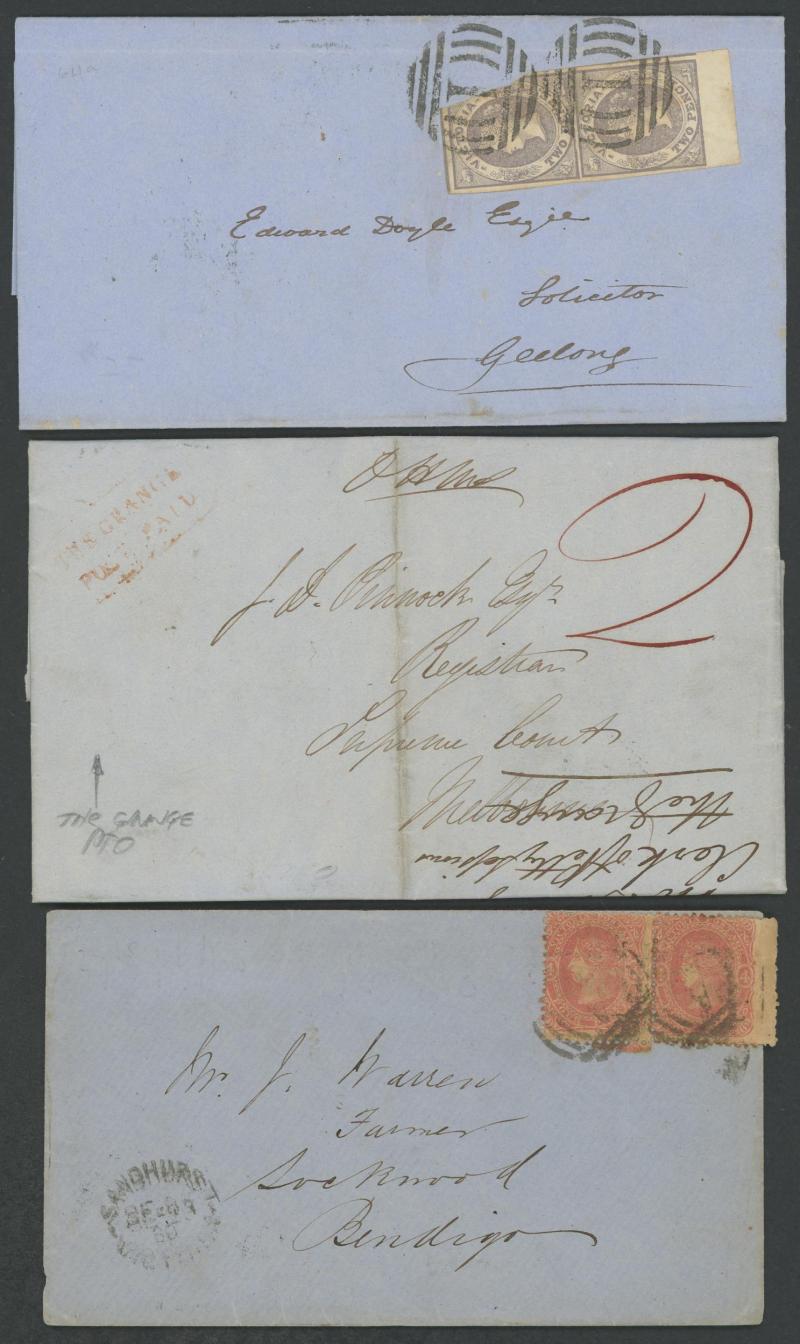 64a
1
1
VICTORIA
TWO PENCE
VICTORIA
TWO PENCE
Edward Doyle Esqre
Solicitor
Geelong
THE GRANGE
POST PAID
O H M S
2
J. D. Pinnock Esqre
Registrar
Supreme Court
Melbourne
The Grange
Clerk of Petty Sessions
THE GRANGE
PTO
Mr. J. Warren
Farmer
Lockwood
Bendigo
SANDHURST
FE